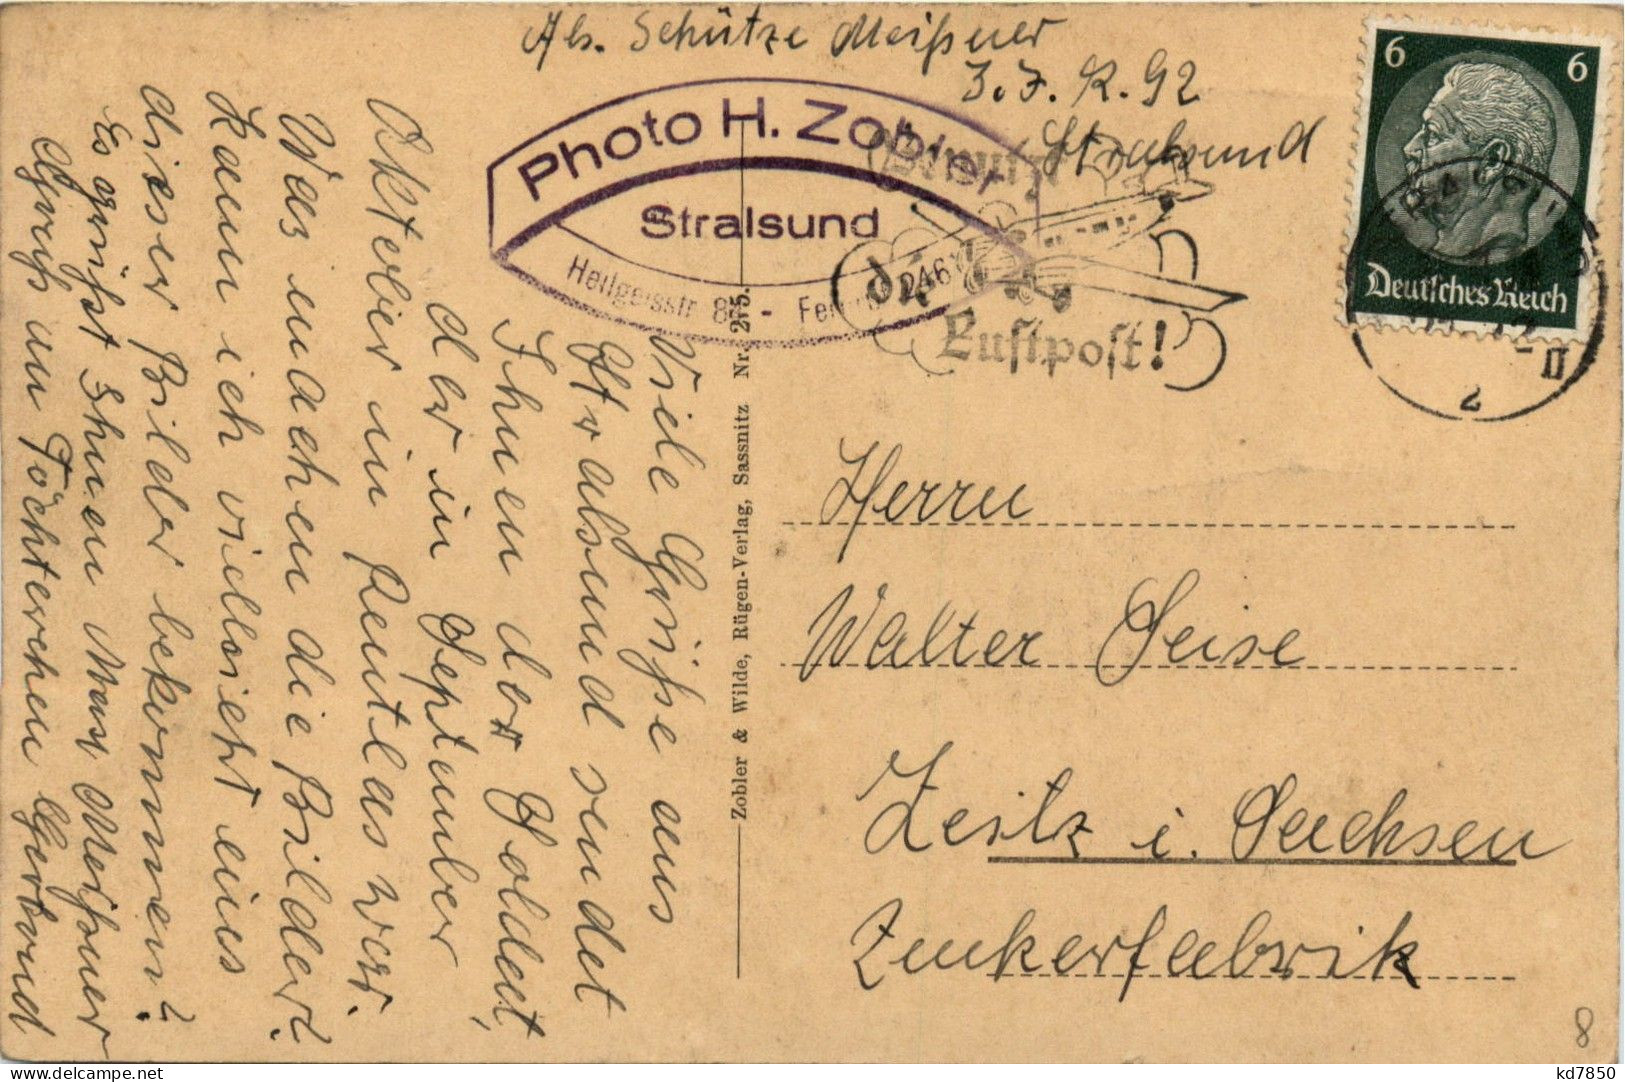 Abs. Schütze Meißner
J.J.R. 92
Stralsund
Photo H. Zobler
Stralsund
Heilgeiststr 8
246
Benutzt
die
Luftpost!
6 6
Deutsches Reich
STRALSUND
2
Viele Grüße aus
Stralsund sendet
Ihnen der Soldat,
der in September
Oktober in Reutlas war.
Was machen die Bilder.
Kann ich vielleicht eins
dieser Bilder bekommen?
Es grüßt Ihnen Max Meißner
Gruß an Töchterchen
Zobler & Wilde, Rügen-Verlag, Sassnitz Nr. 275.
Herrn
Walter Seise
Zeitz i. Sachsen
Zuckerfabrik
8
kd7850